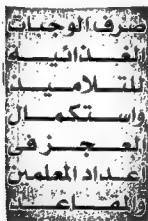 صرف الوجبات
الغذائية
للتلاميذ
واستكمال
العجز فى
اعداد المعلمين
والمقاعد